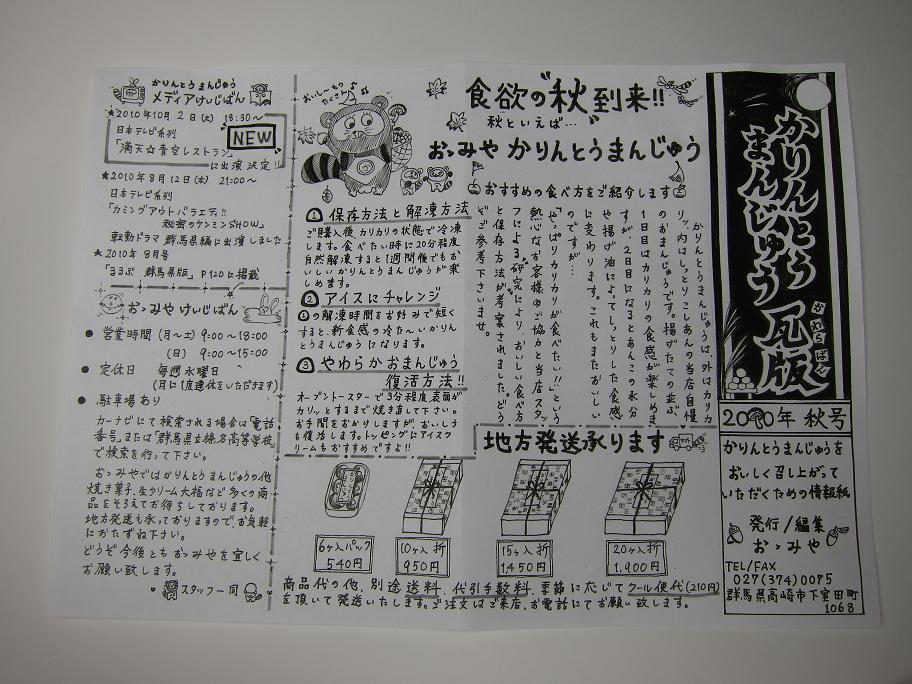 かりんとう
まんじゅう
かわらばん
瓦版
2010年 秋号
かりんとうまんじゅうを
おいしく召し上がって
いただくための情報紙
発行/編集
おゝみや
TEL/FAX
027(374)0075
群馬県高崎市下室田町
1068
食欲の"秋"到来!!
秋といえば…
おゝみや かりんとうまんじゅう
おすすめの食べ方をご紹介します
おいし〜もの
たくさん♪
かりんとうまんじゅうは、外はカリカ
リッ、内はしっとりこしあんの当店自慢
のおまんじゅうです。揚げたての並ぶ
1日目はカリカリの食感が楽しめま
すが、2日目になるとあんこの水分
や揚げ油によってしっとりした食感
に変わります。これもまたおいしい
のですが…
「やっぱりカリカリが食べたい!!」という
熱心なお客様のご協力と当店スタッ
フによる研究により、おいしい食べ方
と保存方法が考案されました。どう
ぞご参考下さいませ。
① 保存方法と解凍方法
ご購入後、カリカリの状態で冷凍
します。食べたい時に20分程度
自然解凍すると1週間後でもお
いしいかりんとうまんじゅうが楽
しめます。
② アイスにチャレンジ
①の解凍時間をお好みで短く
すると、新食感の冷た〜いかりん
とうまんじゅうになります。
③ やわらかおまんじゅう
復活方法!!
オーブントースターで3分程度、表面が
カリッとするまで焼き直して下さい。
お手間をおかけしますが、おいしさ
も復活します。トッピングにアイスク
リームもおすすめですよ!!
地方発送承ります
6ヶ入パック
540円
10ヶ入 折
950円
15ヶ入 折
1,450円
20ヶ入 折
1,900円
商品代の他、別途送料、代引手数料、季節に応じてクール便代(210円)
を頂いて発送いたします。ご注文はご来店、お電話にてお願い致します。
かりんとうまんじゅう
メディアけいじばん
★2010年10月2日(土) 18:30〜
日本テレビ系列
NEW
「満天☆青空レストラン」
に出演決定!!
★2010年8月12日(木) 21:00〜
日本テレビ系列
「カミングアウトバラエティ!!
秘密のケンミンSHOW」
転勤ドラマ群馬県編に出演しました
★2010年 8月号
「るるぶ 群馬県版」P120に掲載
おゝみや けいじばん
● 営業時間 (月〜土) 9:00〜18:00
(日) 9:00〜15:00
● 定休日 毎週水曜日
(月に1度連休をいただきます)
● 駐車場あり
カーナビにて検索される場合は「電話
番号」または「群馬県立榛名高等学校」
で検索を行って下さい。
おゝみやではかりんとうまんじゅうの他
焼き菓子、生クリーム大福など多くの商
品をそろえてお待ちしております。
地方発送も承っておりますので、お気軽
におたずね下さい。
どうぞ今後ともおゝみやを宜しく
お願い致します。
スタッフ一同